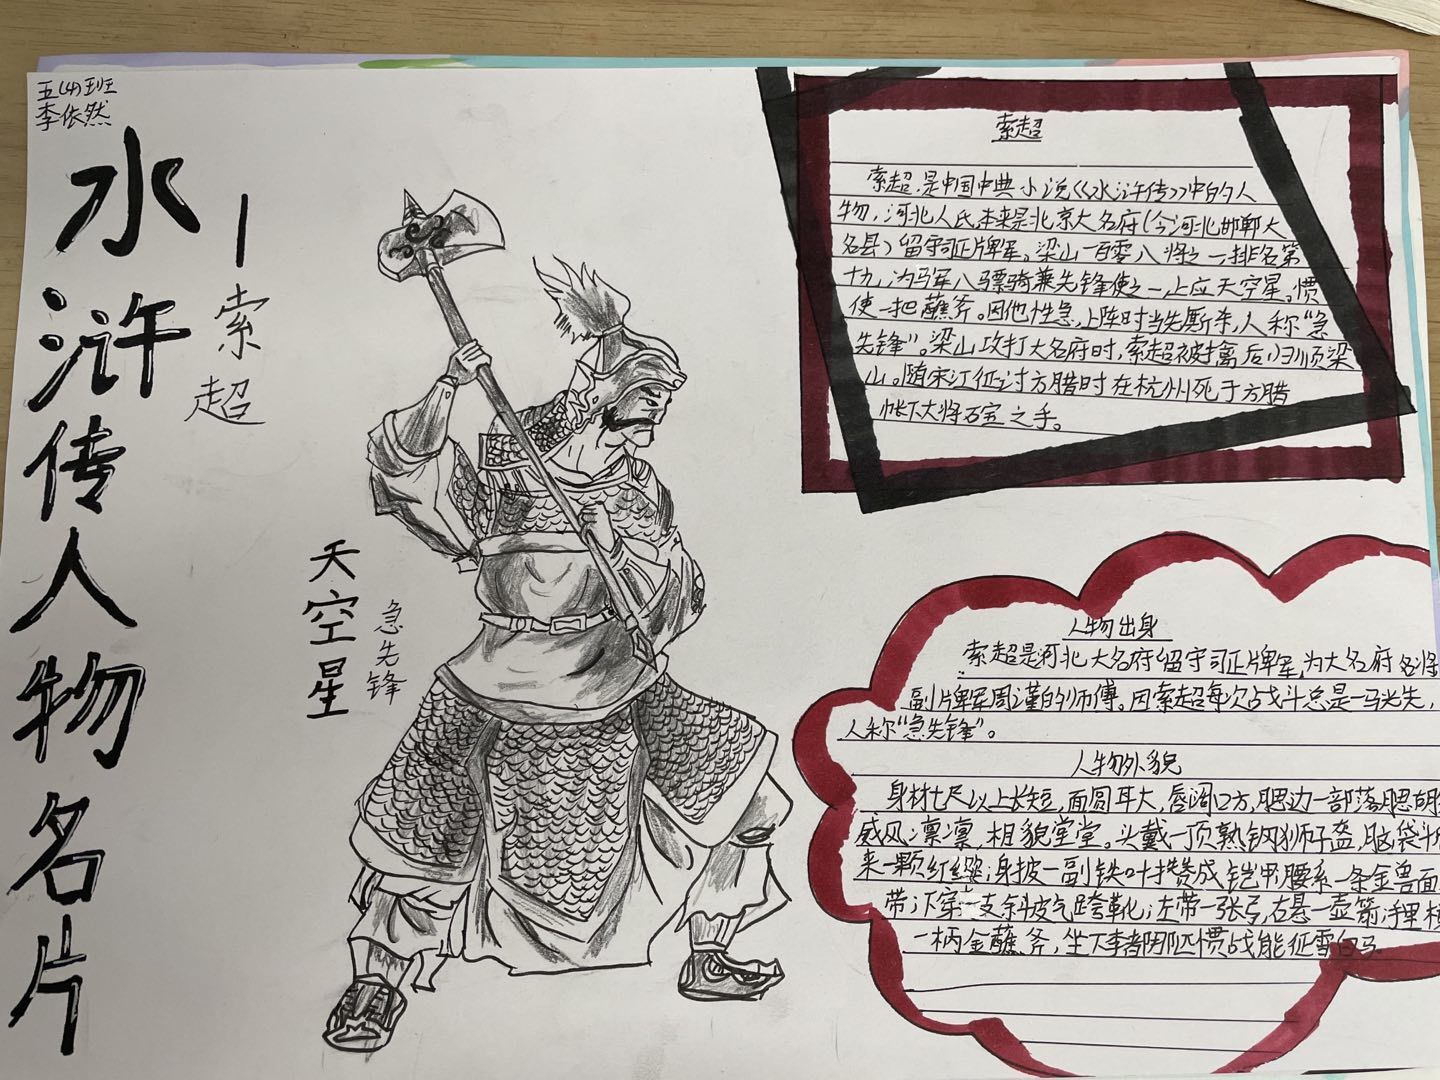 五(4)班
李依然
水浒传人物名片
—索超
天空星
急先锋
索超
索超,是中国中典小说《水浒传》中的人
物,河北人氏,本来是北京大名府(今河北邯郸大
名县)留守司正牌军。梁山一百零八将之一排名第
十九,为马军八骠骑兼先锋使之一上应天空星。惯
使一把蘸斧。因他性急,上阵时当先厮杀,人称“急
先锋”。梁山攻打大名府时,索超被擒后归顺梁
山。随宋江征讨方腊时在杭州死于方腊
帐下大将石宝之手。
人物出身
索超是河北大名府留守司正牌军,为大名府名将
副牌军周谨的师傅。因索超每次占战斗总是一马当先,
人称“急先锋”。
人物外貌
身材七尺以上长短,面圆耳大,唇阔口方,腮边一部落腮胡
威风凛凛,相貌堂堂。头戴一顶熟钢狮子盔,脑袋斗
来一颗红缨;身披一副铁叶攒成铠甲腰系一条金兽面
带;下穿 支斜皮气跨靴;左带一张弓,右悬一壶箭;手里
一柄金蘸斧,坐下李都 匹惯战能征雪白马。